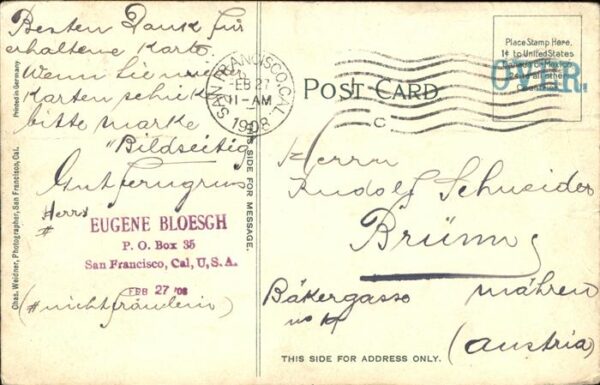 Besten Dank für
erhaltene Karte
Wenn Sie wieder
Karten schicken
bitte Marke
"Bildseitig"
Gut ferngruss
Herrn
#
EUGENE BLOESGH
P. O. Box 35
San Francisco, Cal, U, S. A.
FEB 27 '08
(#nicht fräulein)
Printed in Germany
Chas. Weidner, Photographer, San Francisco, Cal.
THIS SIDE FOR MESSAGE.
SAN FRANCISCO, CAL.
FEB 27
11-AM
1908
C
POST CARD
Place Stamp Here.
1¢ to United States
OVER.
Herrn
Rudolf Schneider
Brünn
Bäkergasse mähren
no 14
(Austria)
THIS SIDE FOR ADDRESS ONLY.